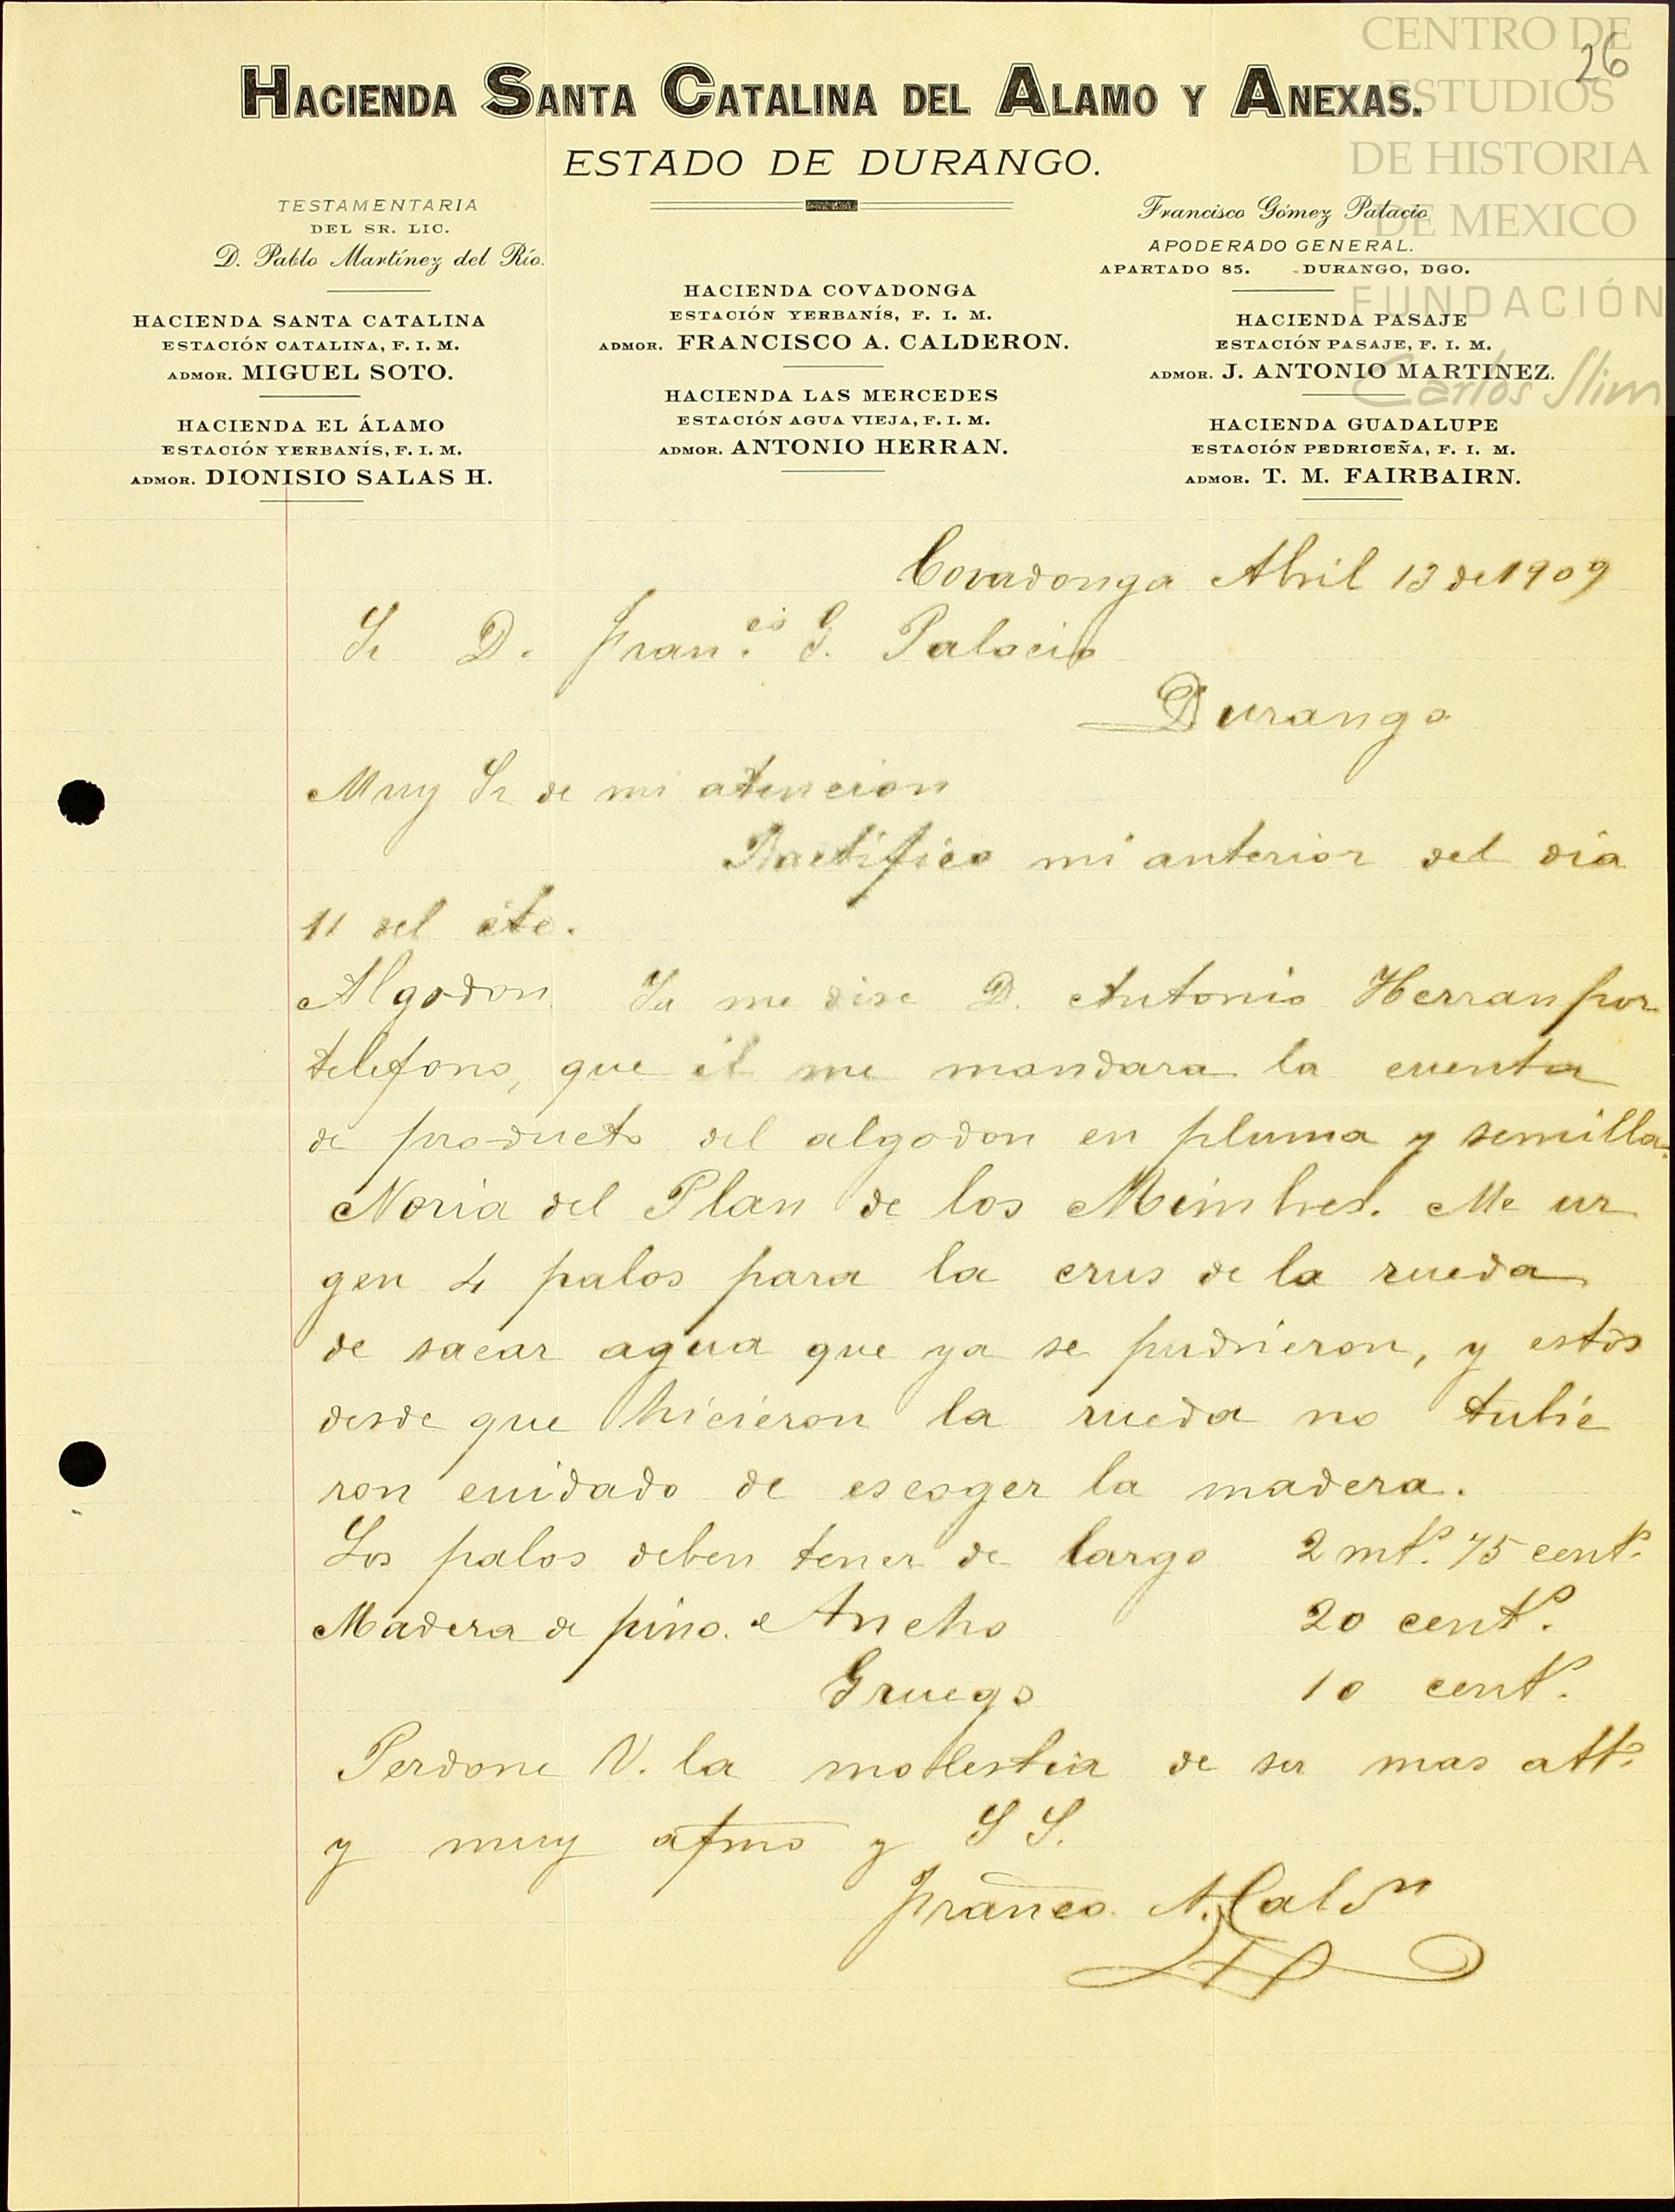 CENTRO DE
ESTUDIOS
DE HISTORIA
DE MEXICO
FUNDACIÓN
Carlos Slim
26
HACIENDA SANTA CATALINA DEL ALAMO Y ANEXAS.
ESTADO DE DURANGO.
TESTAMENTARIA
DEL SR. LIC.
D. Pablo Martínez del Río.
HACIENDA SANTA CATALINA
ESTACIÓN CATALINA, F. I. M.
ADMOR. MIGUEL SOTO.
HACIENDA EL ÁLAMO
ESTACIÓN YERBANÍS, F. I. M.
ADMOR. DIONISIO SALAS H.
HACIENDA COVADONGA
ESTACIÓN YERBANÍS, F. I. M.
ADMOR. FRANCISCO A. CALDERON.
HACIENDA LAS MERCEDES
ESTACIÓN AGUA VIEJA, F. I. M.
ADMOR. ANTONIO HERRAN.
Francisco Gómez Palacio
APODERADO GENERAL.
APARTADO 85. DURANGO, DGO.
HACIENDA PASAJE
ESTACIÓN PASAJE, F. I. M.
ADMOR. J. ANTONIO MARTINEZ.
HACIENDA GUADALUPE
ESTACIÓN PEDRICEÑA, F. I. M.
ADMOR. T. M. FAIRBAIRN.
Covadonga Abril 13 de 1909
Sr D. Fran.co G. Palacio
Durango
Muy Sr de mi atencion
Ractifico mi anterior del dia
11 del cte.
Algodon Ya me dise D. Antonio Herran por
telefono, que él me mandara la cuenta
de producto del algodon en pluma y semilla.
Noria del Plan de los Mimbres. Me ur
gen 4 palos para la crus de la rueda
de sacar agua que ya se pudrieron, y estos
desde que hicieron la rueda no tubie
ron cuidado de escoger la madera.
Los palos deben tener de largo 2 mts. 75 cents.
Madera de pino. Ancho 20 cents.
Gruego 10 cents.
Perdone V. la molestia de su mas atto.
y muy afmo y S S.
Franco. A. Caldn